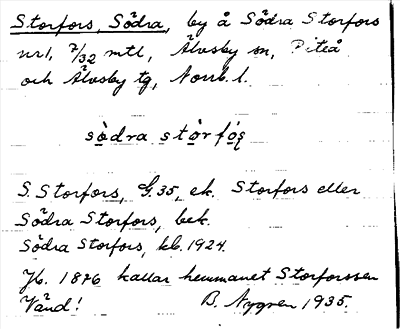 Storfors, Södra, by å Södra Storfors
nr 1, 7/32 mtl, Älvsby sn, Piteå
och Älvsby tg, Norrb. l.
södra stòrfós
S. Storfors, G. 35, ek. Storfors eller
Södra Storfors, bek.
Södra Storfors, kb. 1924.
Jb. 1876 kallar hemmanet Storforssen
Vänd! B. Nygren 1935.